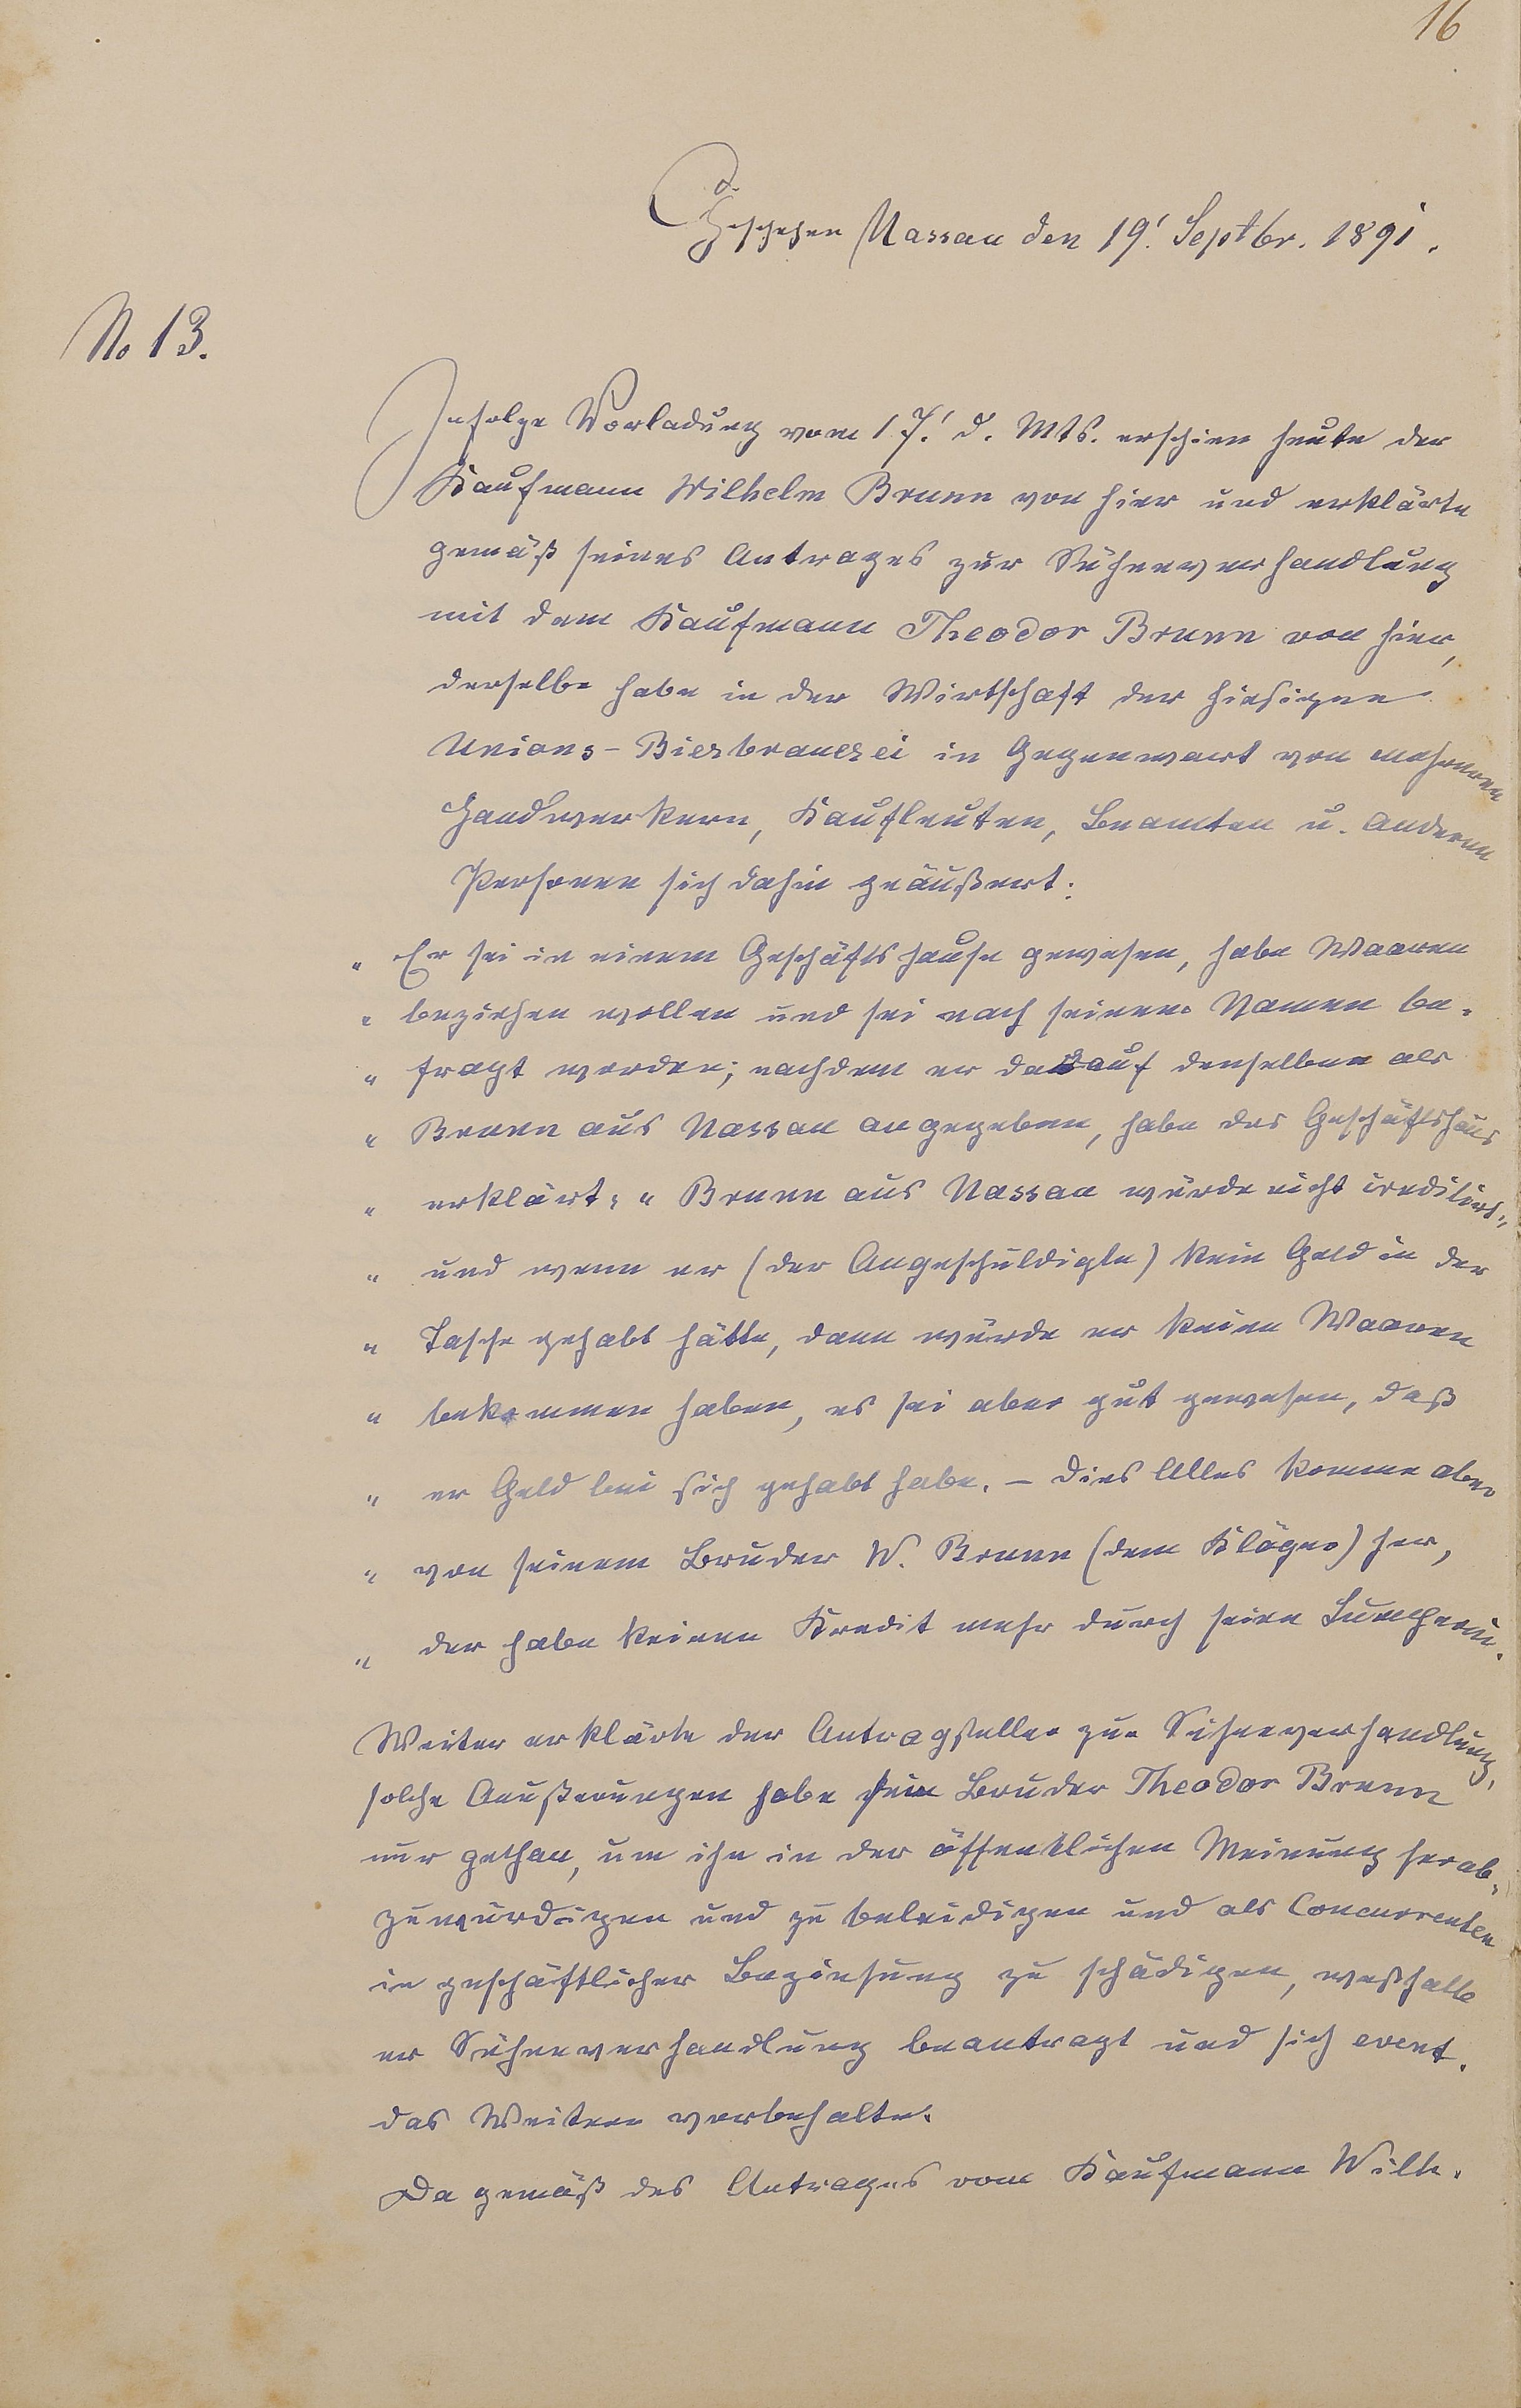 16
Geschehen Nassau den 19! Septbr. 1891.
No 13.
Infolge Vorladung vom 17.' d. Mts. erschien heute der
Kaufmann Wilhelm Brunn von hier und erklärte
gemäß seines Antrages zur Sühneverhandlung
mit dem Kaufmann Theodor Brunn von hier,
derselbe habe in der Wirtschaft der hiesigen
Unions-Bierbrauerei in Gegenwart von mehreren
Handwerkern, Kaufleuten, Beamten u. anderen
Personen sich dahin geäußert:
" Er sei in einem Geschäftshause gewesen, habe Waaren
" beziehen wollen und sei nach seinem Namen be-
" fragt worden; nachdem er darauf denselben als
" Brunn aus Nassau angegeben, habe das Geschäftshaus
" erklärt: " Brunn aus Nassau würde nicht creditirt"
" und wenn er (der Angeschuldigte) kein Geld in der
" Tasche gehabt hätte, dann würde er keine Waaren
" bekommen haben, es sei aber gut gewesen, daß
" er Geld bei sich gehabt habe. – Dies Alles komme aber
" von seinem Bruder W. Brunn (dem Kläger) her,
" der habe keinen Kredit mehr durch seine Lumperei.
Weiter erklärte der Antragsteller zur Sühneverhandlung,
solche Aeußerungen habe sein Bruder Theodor Brunn
nur gethan, um ihn in der öffentlichen Meinung herab-
zuwürdigen und zu beleidigen und als Concurrenten
in geschäftlicher Beziehung zu schädigen, weßhalb
er Sühneverhandlung beantragt und sich event.
das Weitere vorbehalte.
Da gemäß des Antrages vom Kaufmann Wilh.